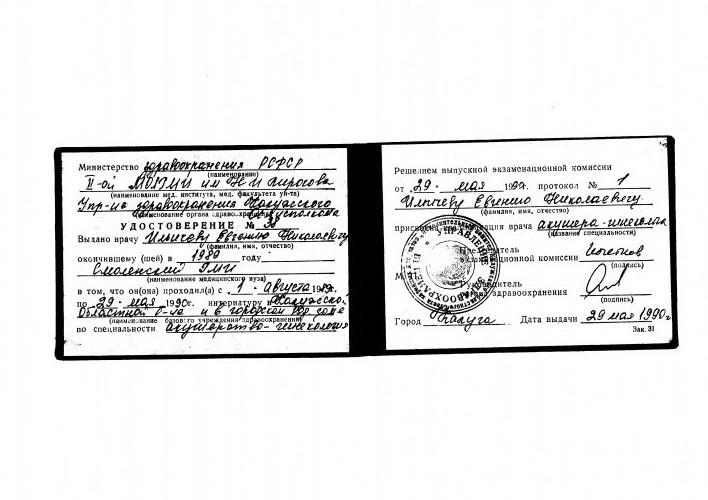 Министерство здравоохранения РСФСР
(наименование)
II-ой МОЛГМИ им Н И Пирогова
(наименование мед. института, мед. факультета ун-та)
Упр-ие здравоохранения Калужского
(наименование органа здравоохранения) облисполкома
УДОСТОВЕРЕНИЕ № 38
Выдано врачу Ильичеву Евгению Николаевичу
(фамилия, имя, отчество)
окончившему (шей) в 1989 году
Смоленский ГМИ
(наименование медицинского вуза)
в том, что он(она) проходил(а) с 1 августа 1989г.
по 29 мая 1990г. интернатуру в Калужской
областной б-це и в городском род доме
(наименование базов го учреждения здравоохранения)
по специальности акушерство-гинекология
Решением выпускной экзаменационной комиссии
от 29 мая 1990г. протокол № 1
Ильичеву Евгению Николаевичу
(фамилия, имя, отчество)
присвоена квалификация врача акушера-гинеколога
(название специальности)
Председатель
экзаменационной комиссии
(подпись)
М. П.
здравоохранения
(подпись)
УПРАВЛЕНИЕ ЗДРАВООХРАНЕНИЯ
Город Калуга Дата выдачи 29 мая 1990г.
Зак. 31